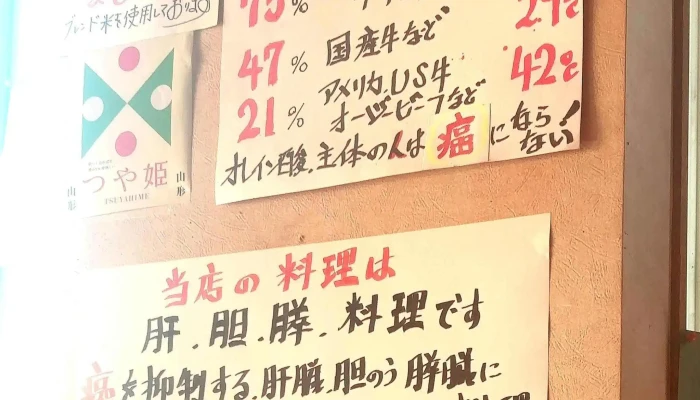 ブレンド米を使用しております
山形
つや姫
山形
TSUYAHIME
75%
47% 国産牛など 42℃
21% アメリカ、US牛
オージービーフなど
オレイン酸、主体の人は癌にならない!
当店の料理は
肝、胆、膵、料理です
癌を抑制する、肝臓、胆のう膵臓に